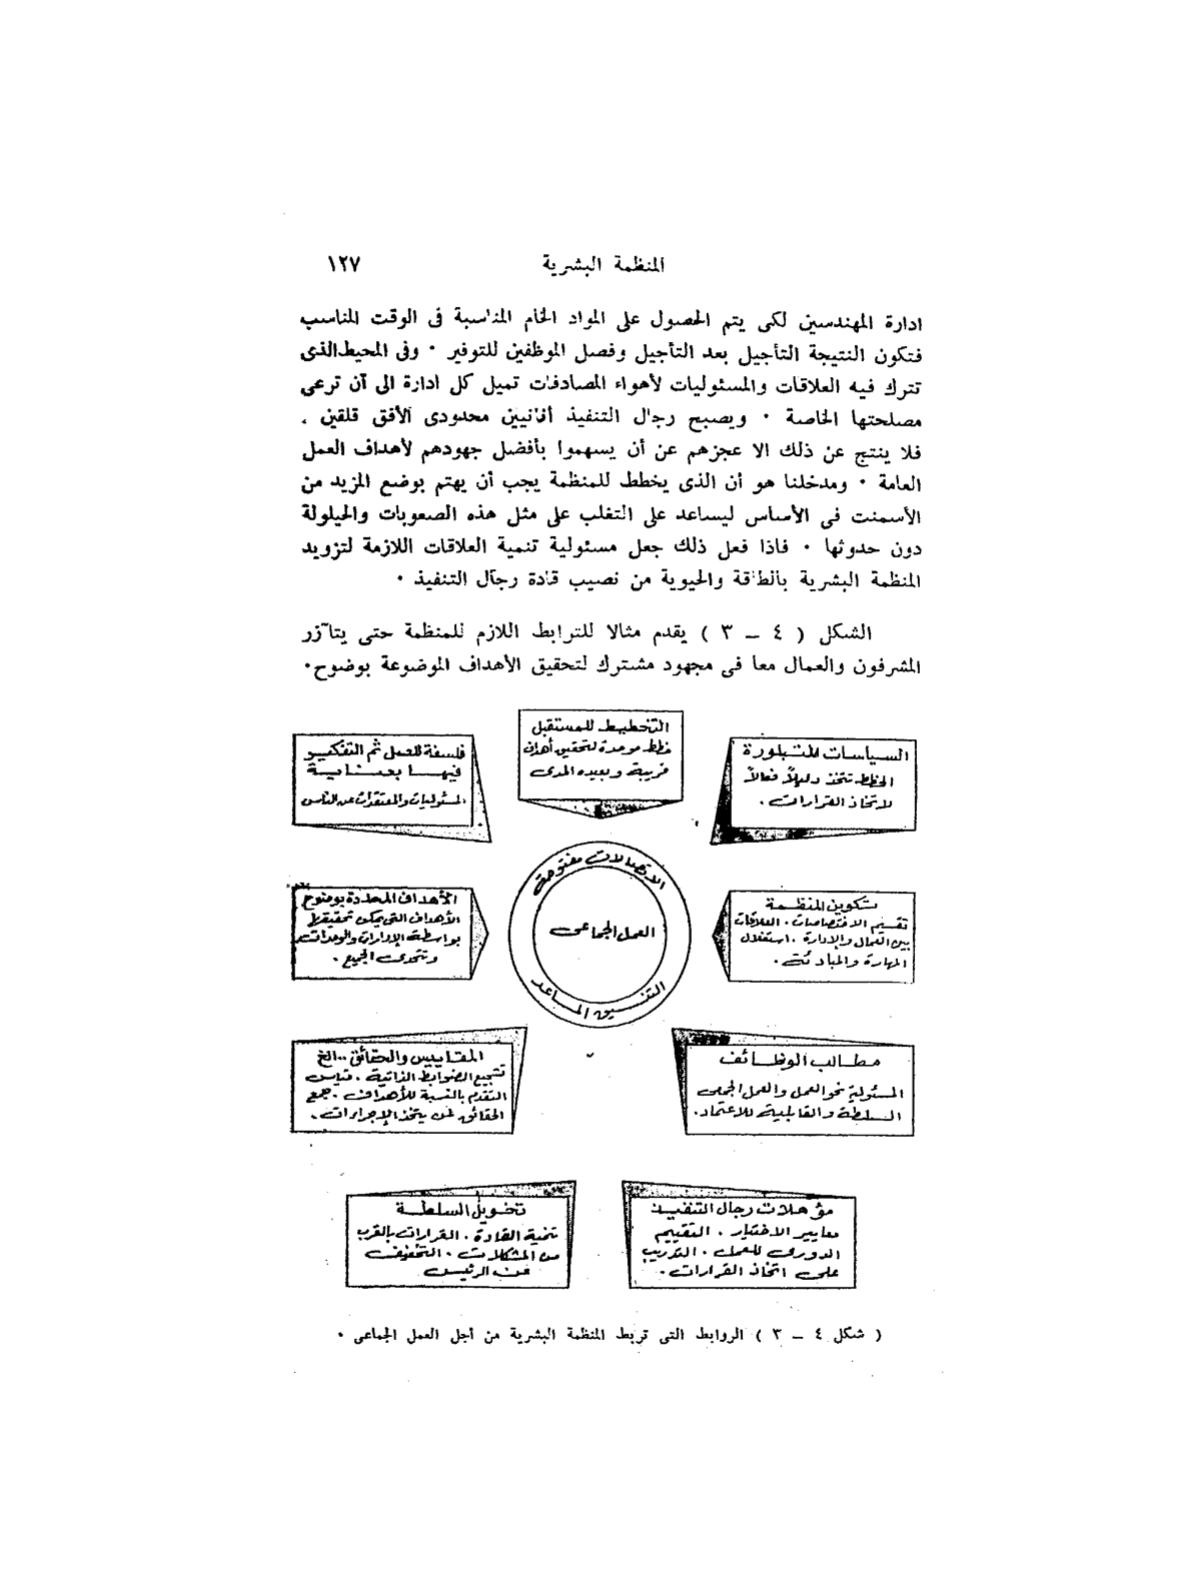 المنظمة البشرية ١٢٧
ادارة المهندسين لكى يتم الحصول على المواد الخام المناسبة فى الوقت المناسب
فتكون النتيجة التأجيل بعد التأجيل وفصل الموظفين للتوفير ٠ وفى المحيط الذى
تترك فيه العلاقات والمسئوليات لأهواء المصادفات تميل كل ادارة الى أن ترعى
مصلحتها الخاصة ٠ ويصبح رجال التنفيذ أنانيين محدودى الأفق قلقين .
فلا ينتج عن ذلك الا عجزهم عن أن يسهموا بأفضل جهودهم لأهداف العمل
العامة ٠ ومدخلنا هو أن الذى يخطط للمنظمة يجب أن يهتم بوضع المزيد من
الأسمنت فى الأساس ليساعد على التغلب على مثل هذه الصعوبات والحيلولة
دون حدوثها ٠ فاذا فعل ذلك جعل مسئولية تنمية العلاقات اللازمة لتزويد
المنظمة البشرية بالطاقة والحيوية من نصيب قادة رجال التنفيذ ٠
الشكل ( ٤ – ٣ ) يقدم مثالا للترابط اللازم للمنظمة حتى يتآزر
المشرفون والعمال معا فى مجهود مشترك لتحقيق الأهداف الموضوعة بوضوح٠
التخطيط للمستقبل
خطط موحدة لتحقيق أهداف
قريبة وبعيده المدى
السياسات المتبلورة
الخطط تتخذ دليلاً فعالاً
لاتخاذ القرارات .
فلسفة للعمل ثم التفكير
فيها بعناية
المسئوليات والمعتقدات عند الناس
الاتصالات مفتوحة
العمل الجماعى
التنسيق المساعد
تكوين المنظمة
تقسيم الاختصاصات . العلاقات
بين العمال والإدارة . استغلال
المهارة والمبادئة .
الأهداف المحددة بوضوح
الأهداف التى يمكن تحقيقها
بواسطة الإدارات والوحدات
وتتحدى الجميع .
مطالب الوظائف
المسئولية نحو العمل والعمل الجمعى
السلطة والقابلية للاعتماد .
المقاييس والحقائق .. الخ
تشجيع الضوابط الذاتية . قياس
التقدم بالنسبة للأهداف . جمع
الحقائق لمن يتخذ الإجراءات .
مؤهلات رجال التنفيذ
معايير الاختيار . التقييم
الدورى للعمل . التدريب
على اتخاذ القرارات .
تخويل السلطة
تنمية القادة . القرارات بالقرب
من المشكلات . التخفيف
عن الرئيس
( شكل ٤ – ٣ ) الروابط التى تربط المنظمة البشرية من أجل العمل الجماعى ٠